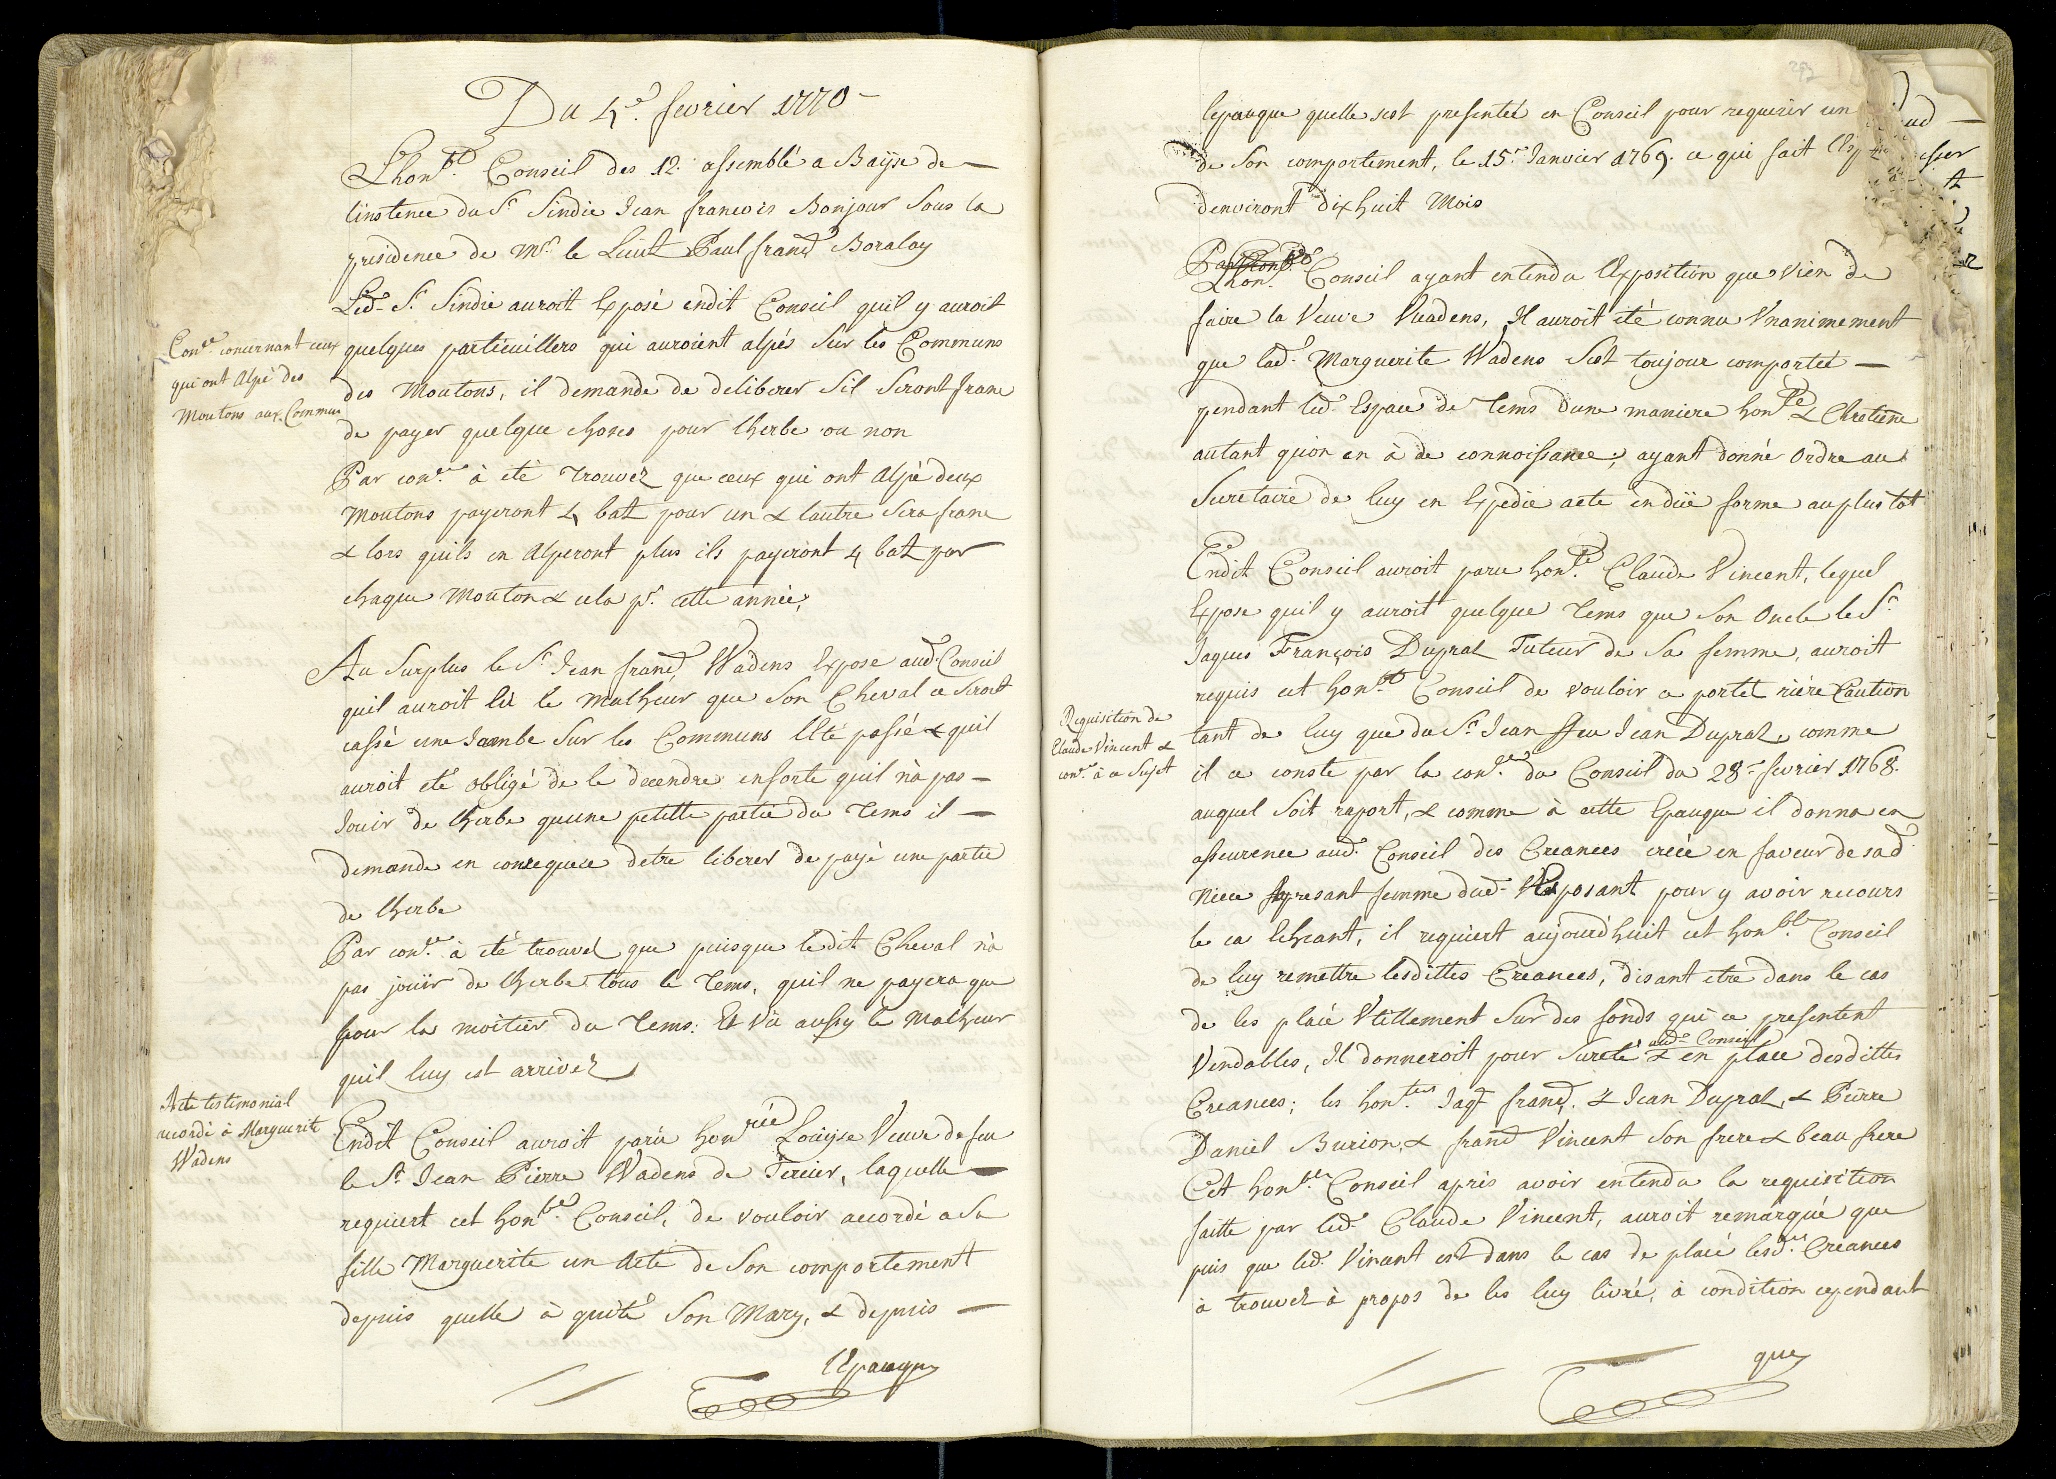 Du 4.e fevrier 1770
Lhon.ble Conseil des 12. assemblé a Bayse de
linstence du S.r Sindic Jean francois Bonjour Sous la
presidence de M.r le Lieut Paul franc.
Led. S.r Sindic auroit Exposé endit Conseil quil y auroit
Con.ce concernant ceux
qui ont Alpé des
Moutons aux Commun
quelques particuillers qui auroient alpés Sur les Communs
des Moutons, il demande de deliberer Sil Seront franc
de payer quelque choses pour lherbe ou non
Par con.ce à eté trouvez que ceux qui ont Alpé deux
Moutons payeront 4 batz pour un & lautre Sera franc
& lors quils en Alperont plus ils payeront 4 batz par
chaque Mouton & cela p.r cette année,
Au Surplus le S.r Jean franc. Wadens Expose aud. Conseil
quil auroit Eü le Malheur que Son Cheval ce Seroit
cassé une Jambe Sur les Communs lEté passé & quil
auroit eté obligé de le decendre ensorte quil n'a pas
Jouir de lherbe qu'une petitte partie du Tems il
demande en conseqence detre liberer de payé une partie
de lherbe
Par con.ce à eté trouvé que puisque ledit Cheval n'a
pas joüir de lherbe tous le Tems, quil ne payera que
pour la moitier du Tems: Et Vü aussy le Malheur
quil luy est arrivéz
Acte testimonial
accordé à Marguerite
Wadens
Endit Conseil auroit parü honorée Loüyse Veuve de feu
le S.r Jean Pierre Wadens de Tercier, laquelle
requiert cet hon.ble Conseil, de vouloir accordé a Sa
fille Marguerite un Acte de Son comportement
depuis quelle à quité Son Mary, & depuis
lEpauque
lepauque quelle sest presentée en Conseil pour requerir un
de Son comportement, le 15.e Janvier 1769. ce qui fait
denviront dix huit Mois
Lhon.ble Conseil ayant entendu lExposition que vien de
faire la Veuve Vuadens, Il auroit été connu Vnanimement
que lad. Marguerite Wadens Sest toujour comportée
pendant led. Espace de Tems dune maniere hon.te & Chretiene
autant quon en à de connoissance; ayant donné Ordre au
Secretaire de luy en Expedie acte endüe forme au plus tot
Endit Conseil auroit paru hon.ble Claude Vincent, lequel
Expose quil y auroit quelque Tems que Son Oncle le S.r
Jaques François Dupraz Tuteur de Sa femme, auroit
requis cet hon.ble Conseil de vouloir ce portez riére Caution
Requisition de
Claude Vincent &
con.ce à ce Sujet
tant de luy que du S.r Jean ffeu Jean Dupraz, comme
il ce conste par la con.ce du Conseil du 28.e fevrier 1768.
auquel Soit raport, & comme à cette Epauque il donna en
asseurence aud. Conseil des Creances créée en faveur de sad.
Niece apresant femme dud. Exposant pour y avoir recours
le ca Echeant, il requiert aujourd'huit cet hon.ble Conseil
de luy remettre lesdittes Creances, disant etre dans le cas
de les placé Vtillement Sur des fonds qui ce presentent
Vendables, Il donneroit pour Sureté aud. Conseil & en place desdittes
Creances; les hon.tes Jaq. franç. & Jean Dupraz, & Pierre
Daniel Burion, & franc. Vincent Son frere & beau frere
Cet hon.ble Conseil apres avoir entendu la requisition
faitte par led. Claude Vincent, auroit remarqué que
puis que led. Vincent est dans le cas de placé lesd.es Creances
à trouvéz à propos de les luy livré, à condition cependant
que